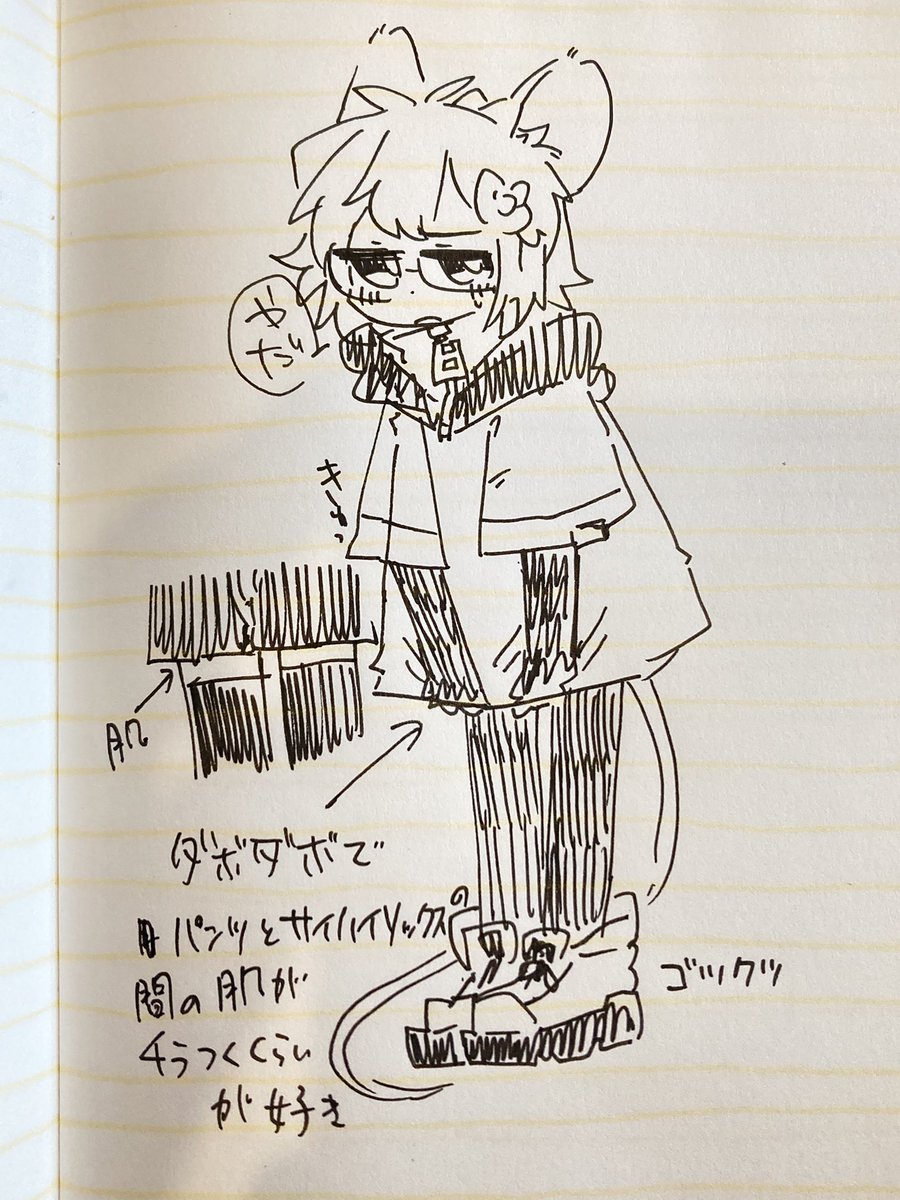 やだ
肌
ダボダボで
パンツとサイハイソックスの
間の肌が
チラつくくらい
が好き
ゴツクツ